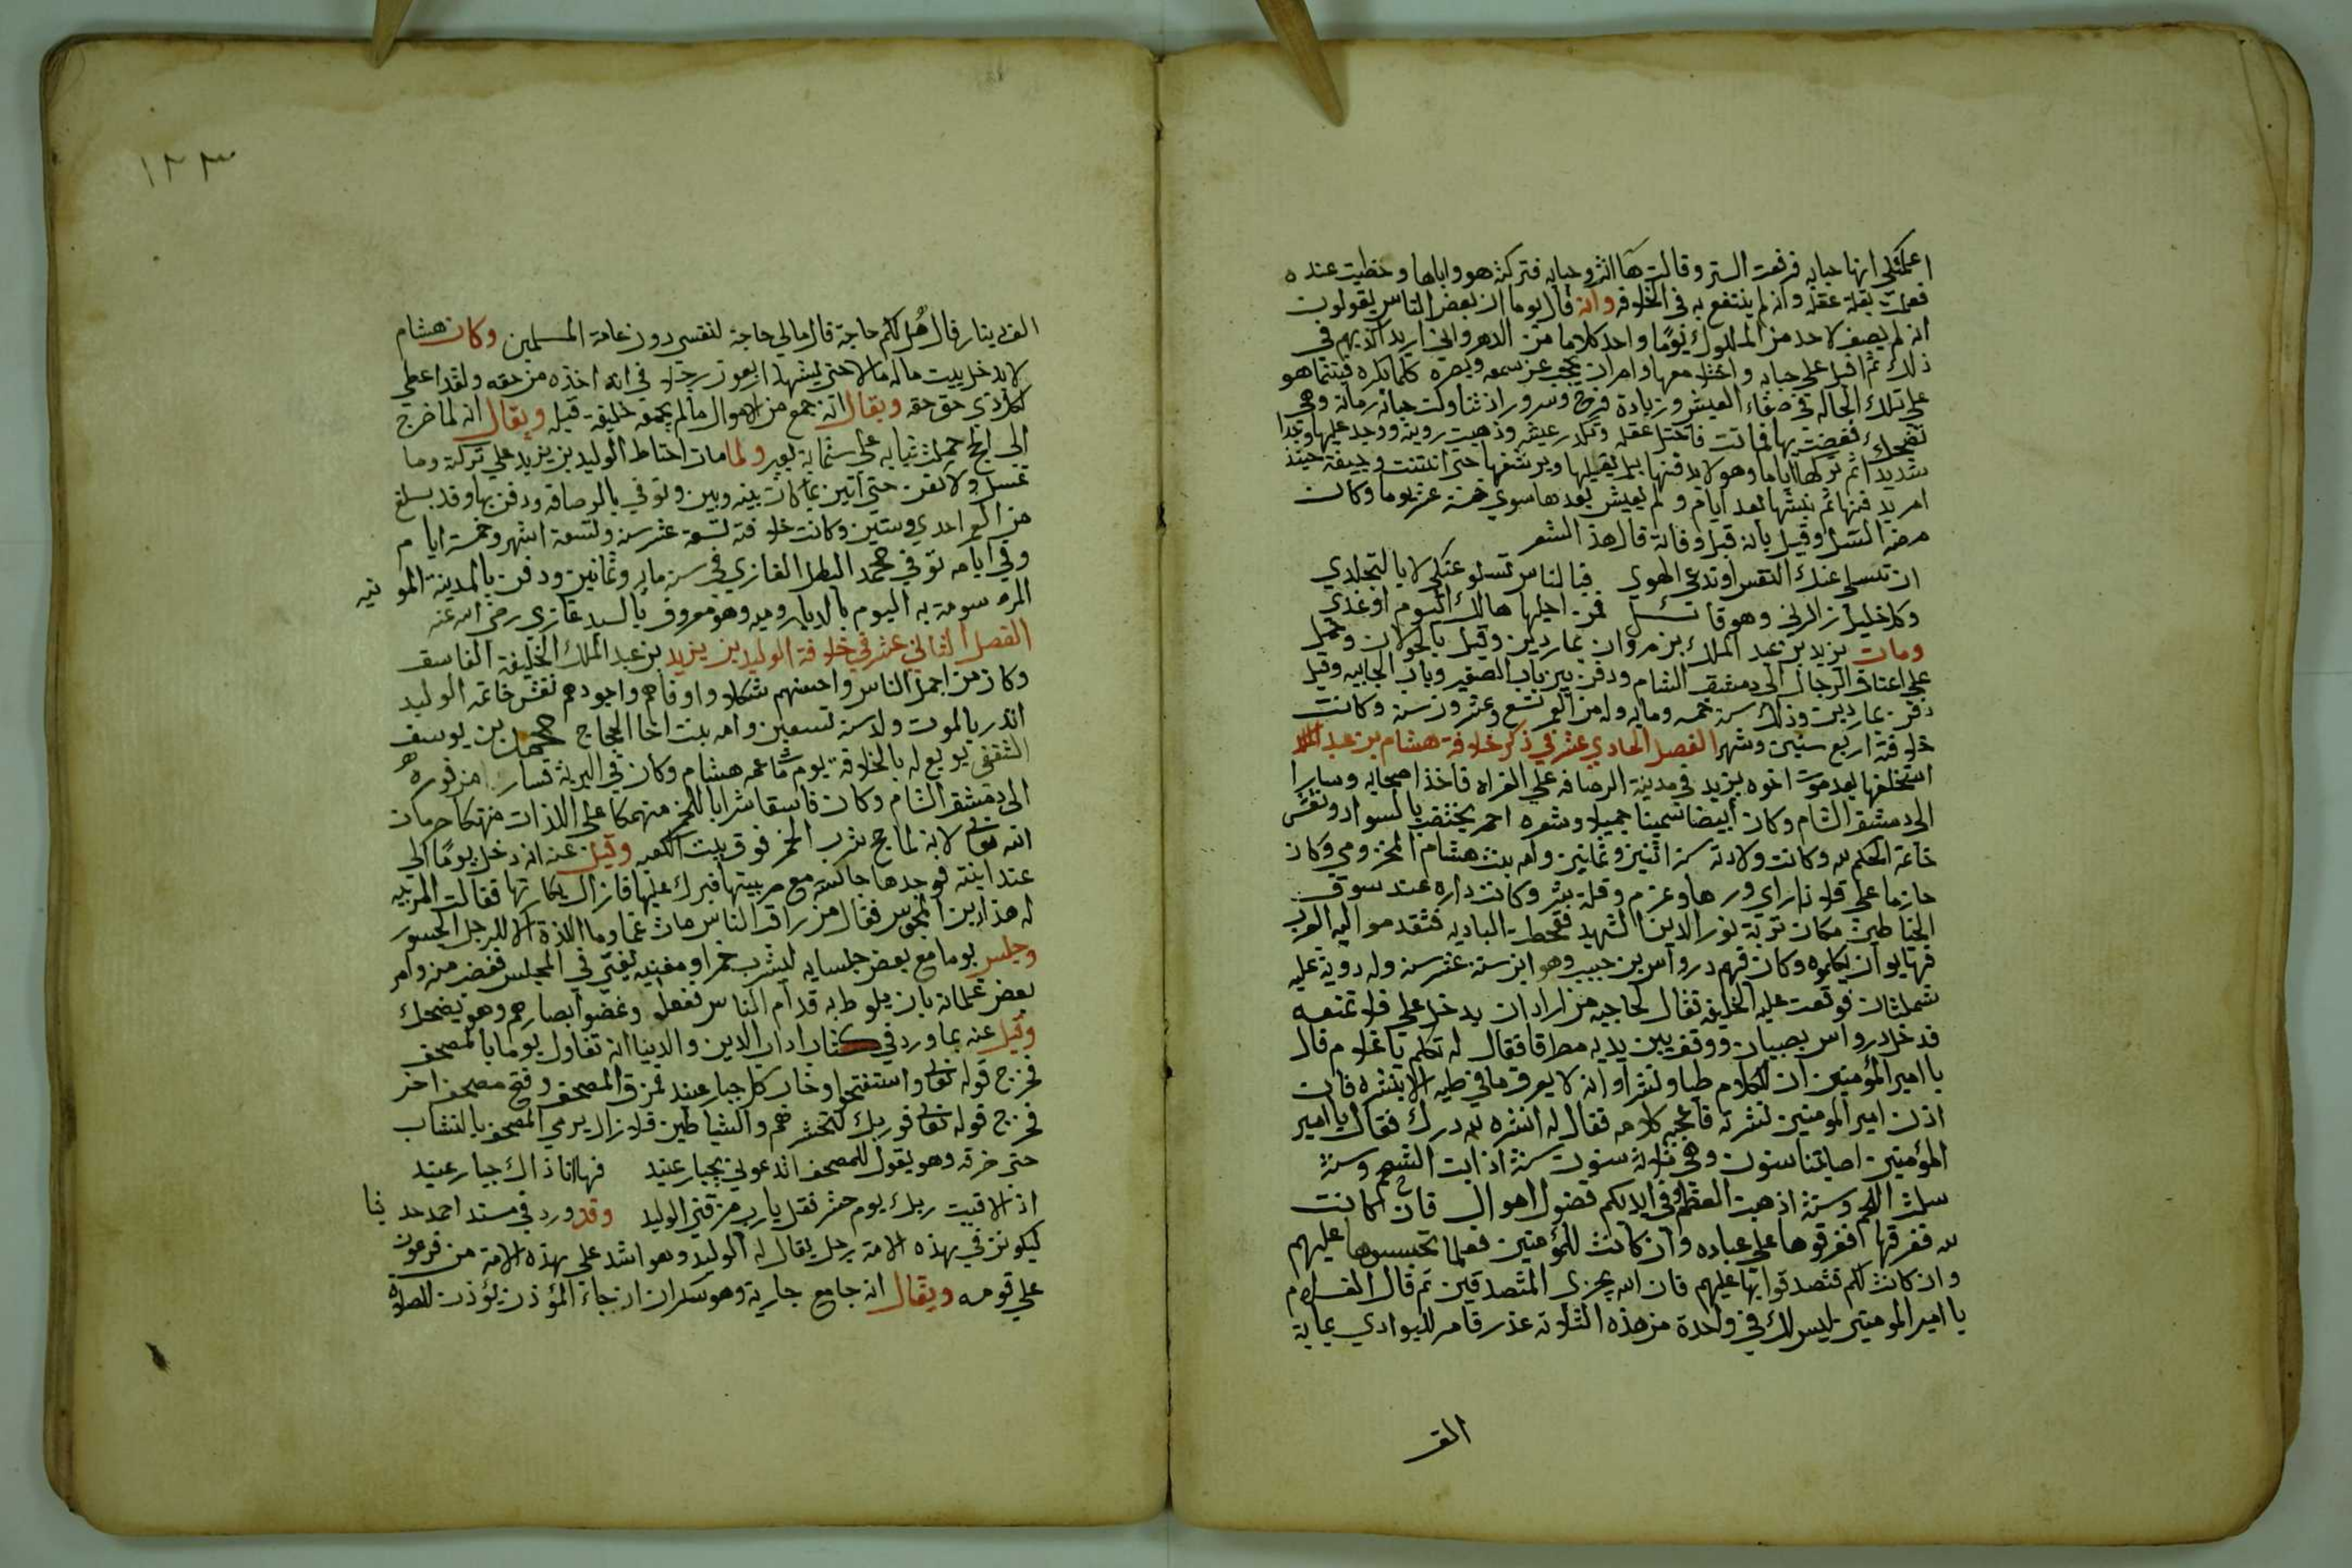 اعلمتكي انها حبابه فرفعت الستر وقالت ها انتي وحبابه فتركته هو واياها وحظيت عنده
فعلمت بقلة عقله وانه لم ينتفع به في الخلافه وانه قال يوما ان بعض الناس يقولون
انه لم يصف لاحد من الملوك يومًا واحد كاملا من الدهر واني اريد اكذبهم في
ذلك ثم اقبل على حبابه واختلا معها وامر ان يحجب عن سمعه وبصره كلما يكره فبينما هو
على تلك الحاله في صفاء العيش وزيادة فرح وسرور اذ تناولت حبابه رمانه وهي
تضحك فغصت بها فماتت فاختل عقله وتكدر عيشه وذهبت رويته ووجد عليها وجدا
شديدا ثم تركها اياما وهو لا يدفنها بل يقبلها ويرشفها حتى انتنت وجيفة حينئذ
امر بدفنها ثم نبشها بعد ايام ولم يعيش بعدها سوى خمسة عشر يوما وكان
مرضه السل وقيل بان قبل وفاته قال هذا الشعر
ان تسلى عنك النفس او تدعي الهوى فبالناس تسلو عنكي لا بالتجلدي
وكل خليل زارني وهو قائل فمن اجلها هالك اليوم او غدي
ومات يزيد بن عبد الملك بن مروان بماردين وقيل بالجولان وحمل
على اعناق الرجال الى دمشق الشام ودفن بين باب الصغير وباب الجابيه وقيل
دفن بماردين وذلك سنة خمسه ومايه وله من العمر تسع وعشرون سنه وكانت
خلافته اربع سنين وشهر الفصل الحادي عشر في ذكر خلافة هشام بن عبد الملك
استخلفها بعد موت اخوه يزيد في مدينة الرصافه على الفراه فاخذ اصحابه وسار ا
الى دمشق الشام وكان ابيضا سمينا جميلا وشعره احمر يختضب بالسواد ونقش
خاتمه الحكم لله وكانت ولادته سنة اثنين وثمانين وامه بنت هشام المخزومي وكان
حازما عاقلا ذا راي ورها وعزم وقلة شر وكانت داره عند سوق
الخياطين مكان تربة نور الدين الشهيد فقحطت الباديه فتقدموا اليه العرب
فهابوا ان يكلموه وكان فيهم درواس بن حبيب وهو ابن ستة عشر سنه وله دوية عليه
شملتان فوقعت عليه الخليفه فقال لحاجبه من اراد ان يدخل علي فلا تمنعه
فدخل درواس بصبيان ووقف بين يديه مطرقا فقال له تكلم يا غلام قال
يا امير المؤمنين ان للكلام طيا ونشرا وانه لا يعرف ما في طيه الا بنشره فان
اذن امير المومنين نشرته فاعجبه كلامه فقال له انشره لله درك فقال يا امير
المؤمنين اصابتنا سنون وهي ثلاثة سنون سنة اذابت الشحم وسنة
سلت اللحم وسنة اذهبت العظم وفي ايديكم فضول اموال فان كانت
لله ففرقها ففرقوها على عباده وان كانت للمؤمنين فعلما تحبسوها عليهم
وان كانت لكم فتصدقوا بها عليهم فان الله يجزي المتصدقين ثم قال الغلام
يا امير المومنين ليس لك في واحدة من هذه الثلاثه عذر فامر للبوادي بماية
الف
١٢٣
الف دينار فقال هل لكم حاجة قال مالي حاجة لنفسي دون عامة المسلمين وكان هشام
لا يدخل بيت ماله مالا حتى يشهد اربعون رجلا في انه اخذه من حقه ولقد اعطي
لكل ذي حق حقه ويقال انه جمع من الاموال مالم يجمعه خليفة قبله ويقال انه لما خرج
الى الحج حملت ثيابه على ستماية بعير ولما مات احتاط الوليد بن يزيد على تركته وما
غسل ولا كفن حتى اتين بما كانت بينه وبين وتوفي بالرصافه ودفن بها وقد بلغ
من العمر احدى وستين وكانت خلافته تسعة عشر سنه وتسعة اشهر وخمسة ايام
وفي ايامه توفي محمد البطل الغازي في سنة مايه وثمانين ودفن بالمدينة المو نيه
المرسومة به اليوم بالديار روميه وهو معروف بالسيد غازي رضي الله عنه
الفصل الثاني عشر في خلافة الوليد بن يزيد بن عبد الملك الخليفة الفاسق
وكان من اجمل الناس واحسنهم شكلا واوفاهم واجودهم نقش خاتمه الوليد
انذر بالموت ولد سنة تسعين وامه بنت اخا الحجاج محمد بن يوسف
الثقفي بويع له بالخلافة يوم مات عمه هشام وكان في البرية فسار من فوره
الى دمشق الشام وكان فاسقا شرابا للخمر منهمكا على اللذات منهتكا حرمات
الله تعالى لانه لما حج شرب الخمر فوق بيت الكعبه وقيل عنه انه دخل يومًا الى
عند ابنته فوجدها جالسة مع مربيتها فبرك عليها فازال بكارتها فقالت المربيه
له هذا دين المجوس فقال من راقب الناس مات غما وما اللذة الا للرجل الجسور
وجلس يوما مع بعض جلسايه ليشرب خمرا ومغنيه تغني في المجلس فغضب منه وامر
بعض غلمانه بان يلوط به قدام الناس ففعلوا وغضوا ابصارهم وهو يضحك
وقيل عنه بما ورد في كتاب ادب الدين والدنيا انه تفاول يوما بالمصحف
فخرج قوله تعالى واستفتحوا وخاب كل جبار عنيد فمزق المصحف وفتح مصحف اخر
فخرج قوله تعالى فوربك لنحشرنهم والشياطين فلا زال يرمي المصحف بالنشاب
حتى خرقه وهو يقول للمصحف اتدعوني بجبار عنيد فها انا ذاك جبار عنيد
اذ الاقيت ربك يوم حشر فقل يا رب مزقني الوليد وقد ورد في مسند احمد حد يثا
ليكونن في هذه الامة رجل يقال له الوليد وهو اشد على هذه الامة من فرعون
على قومه ويقال انه جامع جارية وهو سكران اذ جاء المؤذن يؤذن للصلاة